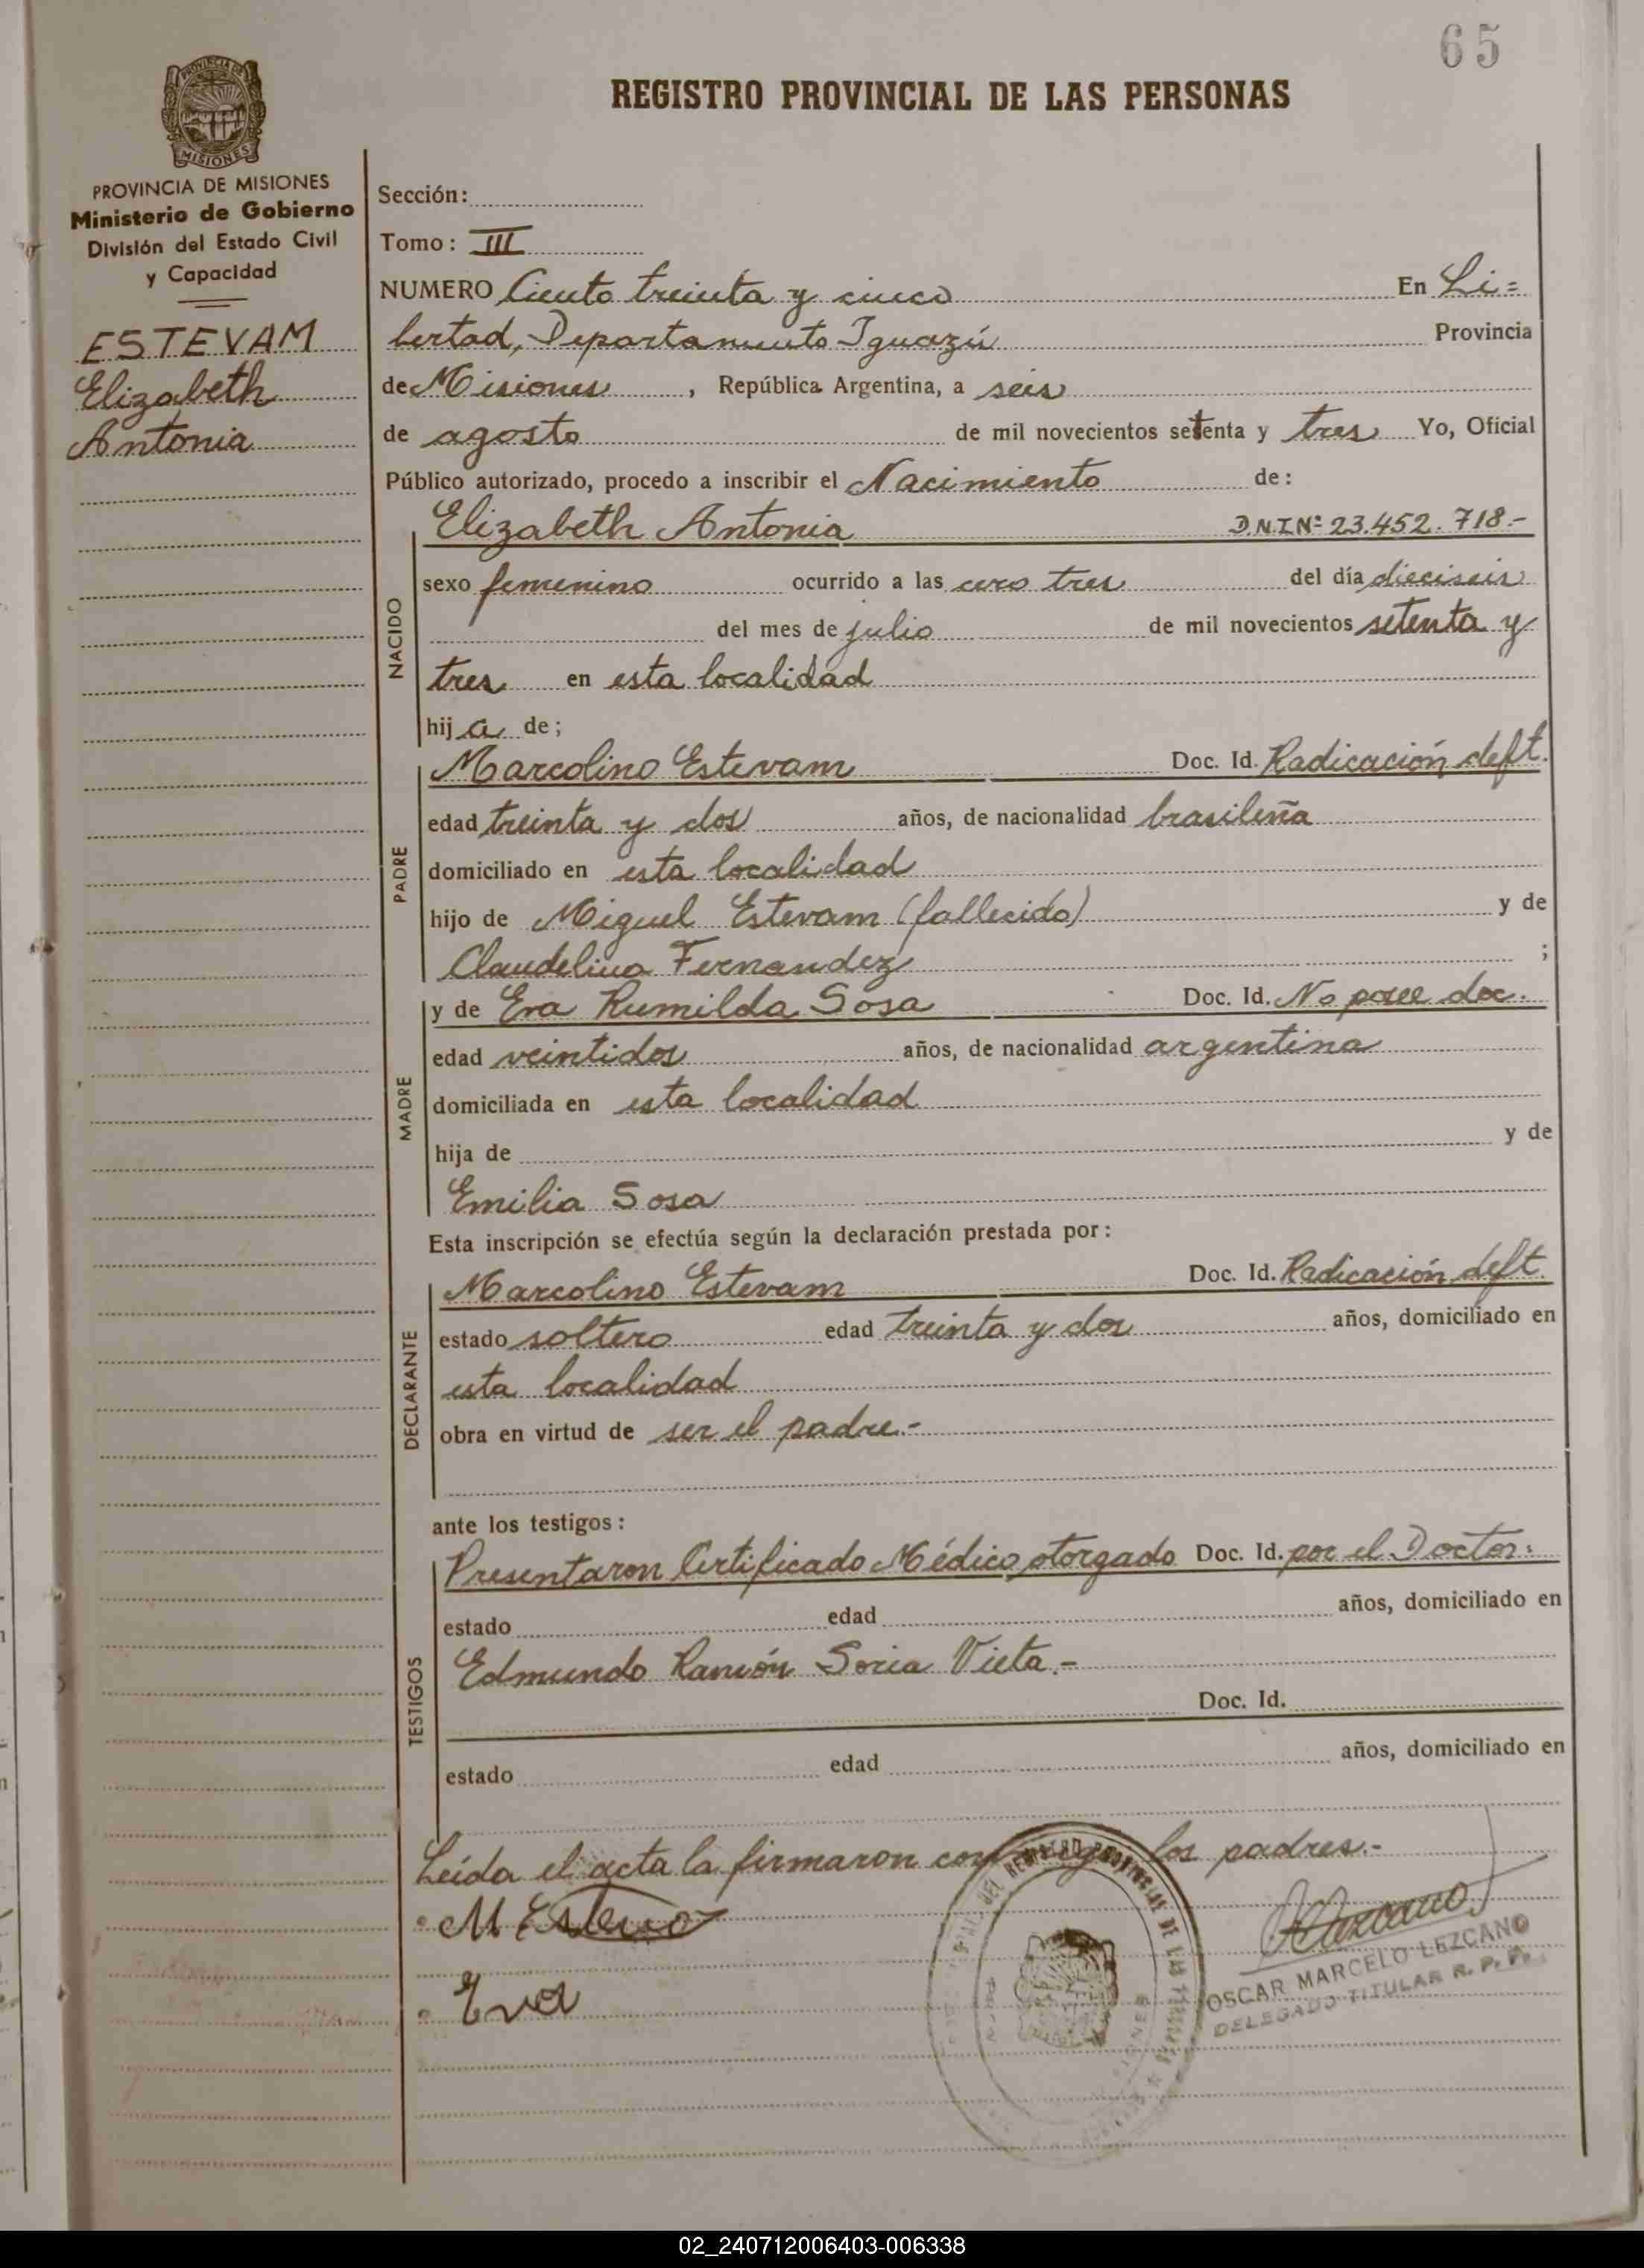 65
REGISTRO PROVINCIAL DE LAS PERSONAS
PROVINCIA DE MISIONES
PROVINCIA DE MISIONES
Ministerio de Gobierno
División del Estado Civil
y Capacidad
ESTEVAM
Elizabeth
Antonia
Sección:
Tomo: III
NUMERO Ciento treinta y cinco En Li=
bertad, Departamento Iguazú Provincia
de Misiones, República Argentina, a seis
de agosto de mil novecientos setenta y tres Yo, Oficial
Público autorizado, procedo a inscribir el Nacimiento de:
NACIDO
Elizabeth Antonia D.N.I Nº 23.452.718.-
sexo femenino ocurrido a las cero tres del día dieciseis
del mes de julio de mil novecientos setenta y
tres en esta localidad
hij a de;
PADRE
Marcolino Estevam Doc. Id. Radicación deft.
edad treinta y dos años, de nacionalidad brasileña
domiciliado en esta localidad
hijo de Miguel Estevam (fallecido) y de
Claudelina Fernandez ;
MADRE
y de Eva Rumilda Sosa Doc. Id. No posee doc.
edad veintidos años, de nacionalidad argentina
domiciliada en esta localidad
hija de y de
Emilia Sosa
Esta inscripción se efectúa según la declaración prestada por:
DECLARANTE
Marcolino Estevam Doc. Id. Radicación deft.
estado soltero edad treinta y dos años, domiciliado en
esta localidad
obra en virtud de ser el padre.-
ante los testigos:
TESTIGOS
Presentaron Certificado Médico otorgado Doc. Id. por el Doctor:
estado edad años, domiciliado en
Edmundo Ramón Soria Vieta.-
Doc. Id.
estado edad años, domiciliado en
Leida el acta la firmaron los padres.-
Eva
DEL REGISTRO PROVINCIAL DE LAS
OSCAR MARCELO LEZCANO
DELEGADO TITULAR R. P. P.
02_240712006403-006338